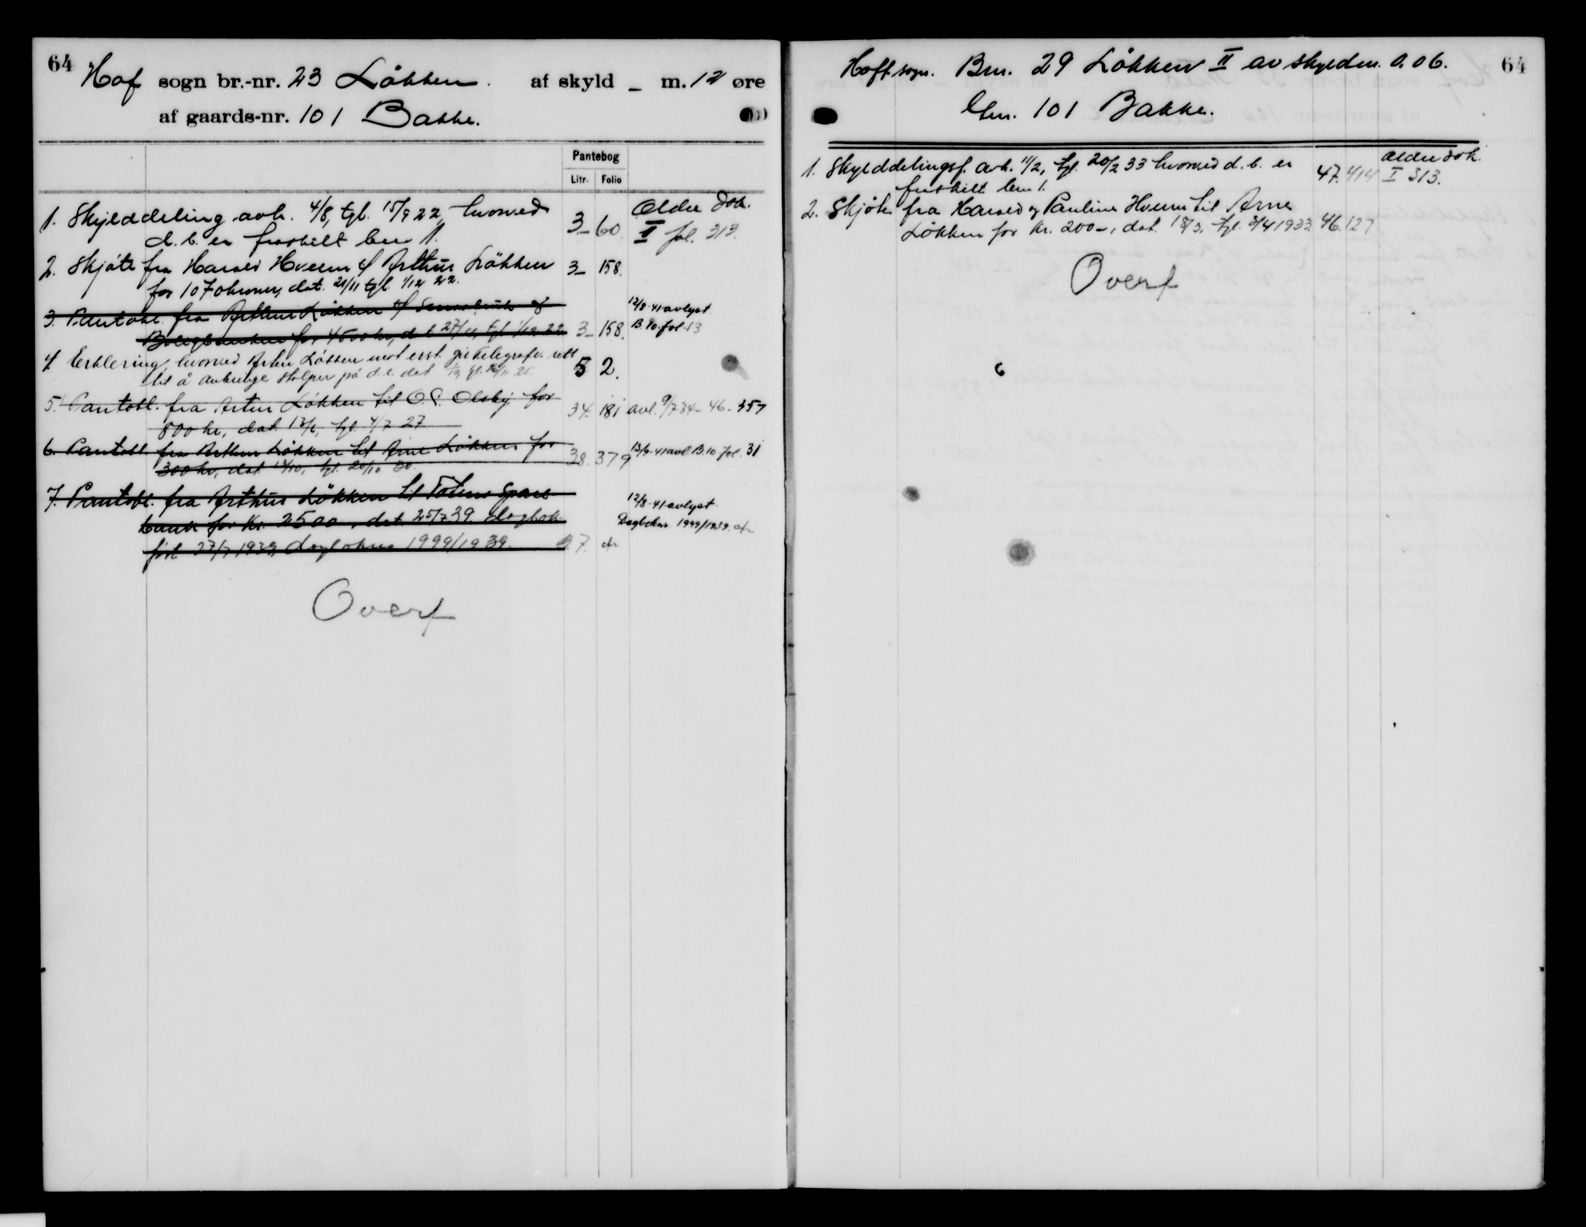 64
Hof sogn br.-nr. 23 Løkken. af skyld – m. 12 øre
af gaards-nr. 101 Bakke.
Pantebog
Litr. Folio
1. Skylddeling avh. 4/8, tgl. 15/9 22, hvorved 3– 60 Ældre dok.
d. b. er fraskilt bnr 11. II fol. 313.
2. Skjøte fra Harald Hveem til Arthur Løkken 3– 158.
for 1070 kroner, dat. 21/11 tgl. 1/12 22.
3. Pantobl. fra Arthur Løkken til Smaabruk og 12/8-41 avlyst
Boligbanken for 4500 kr, dat 27/11, tgl. 1/12 22 3– 158. B 10 fol. 13
4 Erklering, hvorved Artur Løkken mot erst. gir telegrafv. rett
til å anbringe stolper på d. e. dat 5 2.
5. Pantobl. fra Artur Løkken til O. P. Olsby for 34. 181 avl. 9/7 34 – 46 – 357
800 kr, dat 12/2, tgl. 4/7 27.
6. Pantobl. fra Arthur Løkken til Arne Løkken for 38. 379 12/8-41 avl B 10 fol. 31
300 kr, dat 14/10, tgl. 20/10 30.
7. Pantobl. fra Arthur Løkken til Totens Spare- 12/8-41 avlyst
bank for Kr. 2500, dat 25/7 39. Dagbok- Dagboknr 1999/1939.
ført 27/7 1939, dagboknr 1999/1939.
Overf
64
Hoff sogn. Brn. 29 Løkken II av skyldm. 0.06.
Gnr. 101 Bakke.
1. Skylddelingsf. avh. 11/2, tgl. 20/2 33 hvorved d. b. er 47. 414 Ældre dok.
fraskilt bnr 1. I 313.
2. Skjøte fra Harald og Pauline Hveem til Arne
Løkken for kr. 200–, dat. 18/3, tgl. 3/4 1933. 46. 127
Overf